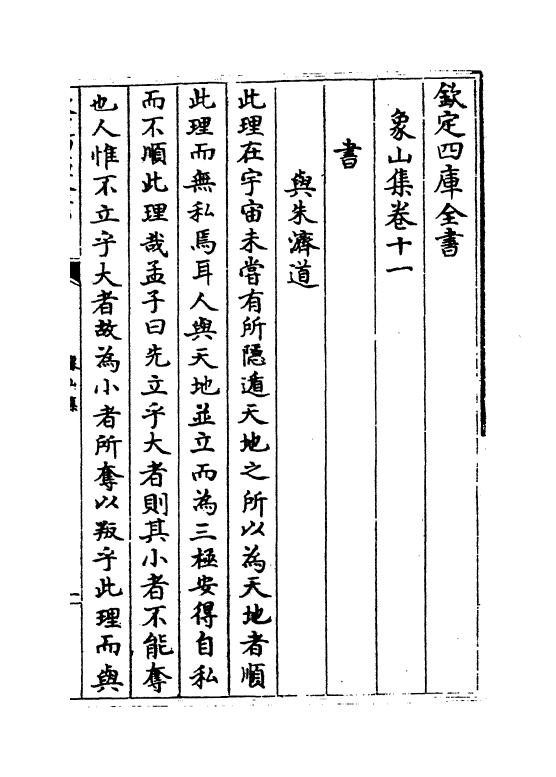 欽定四庫全書
象山集卷十一
書
與朱濟道
此理在宇宙未嘗有所隱遁天地之所以為天地者順
此理而無私焉耳人與天地並立而為三極安得自私
而不順此理哉孟子曰先立乎大者則其小者不能奪
也人惟不立乎大者故為小者所奪以叛乎此理而與
象山集